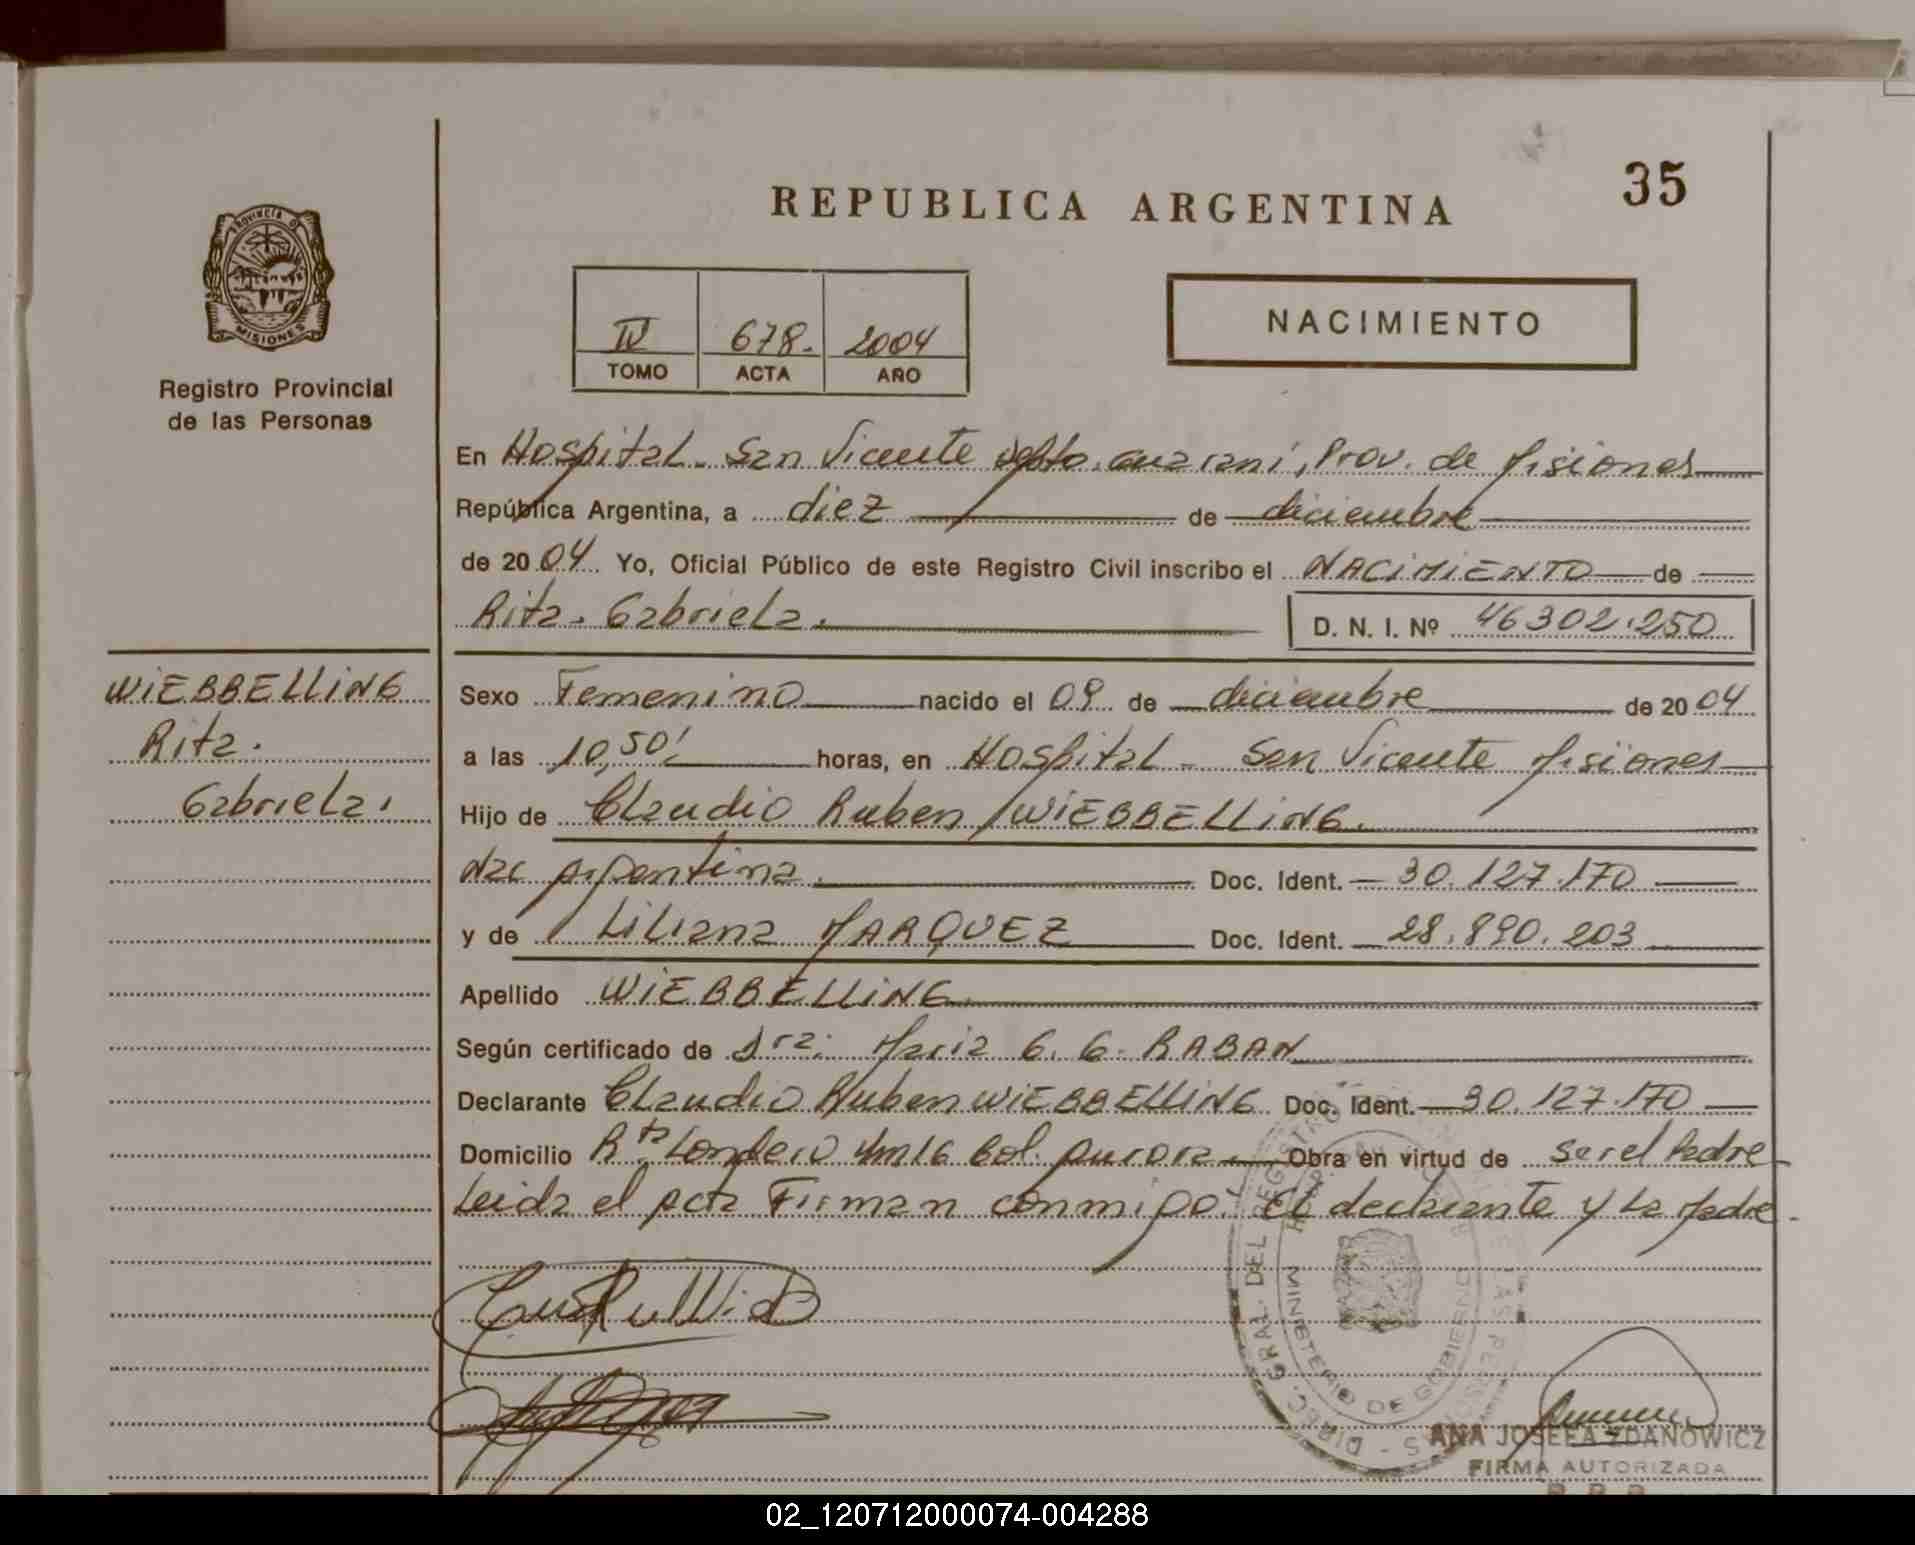 35
REPUBLICA ARGENTINA
PROVINCIA DE
MISIONES
Registro Provincial
de las Personas
IV 678. 2004
TOMO ACTA AÑO
NACIMIENTO
En Hospital - San Vicente Dpto. Guarani, Prov. de Misiones
República Argentina, a diez de diciembre
de 2004 Yo, Oficial Público de este Registro Civil inscribo el NACIMIENTO de
Rita. Gabriela.
D. N. I. Nº 46302.250
WIEBBELLING
Rita.
Gabriela.
Sexo Femenino nacido el 09 de diciembre de 2004
a las 10,50' horas, en Hospital - San Vicente Misiones
Hijo de Claudio Ruben WIEBBELLING.
Nac Argentina. Doc. Ident. 30.127.170
y de Liliana MARQUEZ Doc. Ident. 28.890.203
Apellido WIEBBELLING
Según certificado de Dra: Maria G. G. RABAN
Declarante Claudio Ruben WIEBBELLING Doc. Ident. 30.127.170
Domicilio Rta Londero Km16 Col. Aurora. Obra en virtud de ser el Padre
Leida el Acta Firman conmigo. El declarante y La Madre.
DIREC. GRAL. DEL REGISTRO
MINISTERIO DE GOBIERNO
ANA JOSEFA ZDANOWICZ
FIRMA AUTORIZADA
02_120712000074-004288